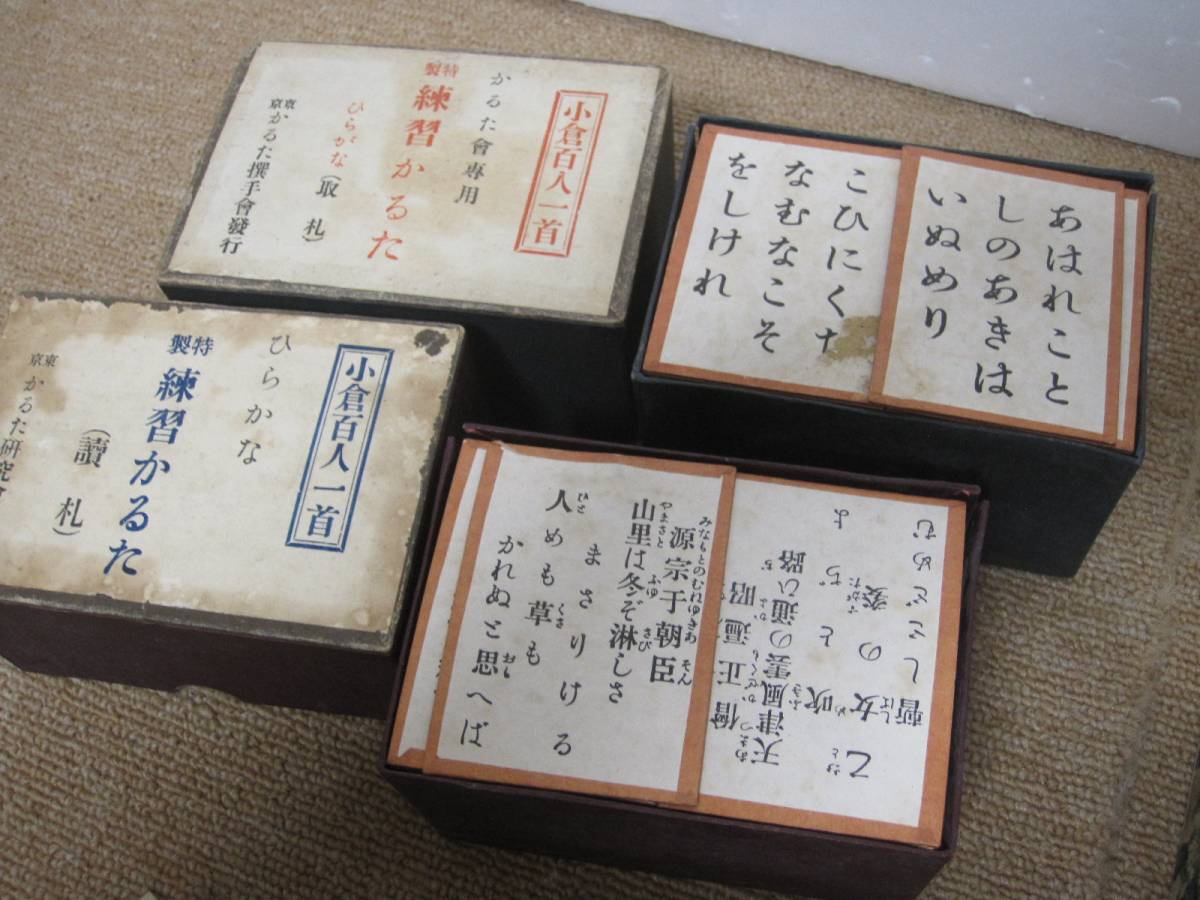 小倉百人一首
かるた會専用
特製
練習かるた
ひらがな(取札)
東京かるた撰手會發行
あはれこと
しのあきは
いぬめり
こひにく
なむなこそ
をしけれ
小倉百人一首
ひらかな
特製
練習かるた
(讀札)
東京かるた研究
みなもとのむねゆきあそん
源宗于朝臣
やまさと ふゆ さび
山里は冬ぞ淋しさ
まさりける
ひと くさ
人めも草も
おも
かれぬと思へば
僧正遍昭
天津風雲の通ひ路
吹とぢよ
乙女の姿
暫しとどめむ